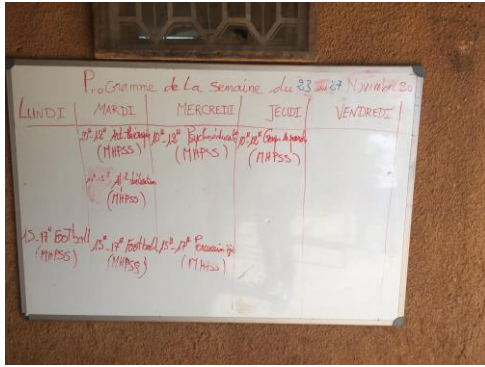 Programme de la Semaine du 23 au 27 Novembre 20
LUNDI MARDI MERCREDI JEUDI VENDREDI
10H-12H Art-thérapie 10H-12H Psychoéducation 10H-12H Groupe de parole
(MHPSS) (MHPSS) (MHPSS)
(MHPSS)
15-17H Football 15H-17H Football 15H-17H
(MHPSS) (MHPSS) (MHPSS)